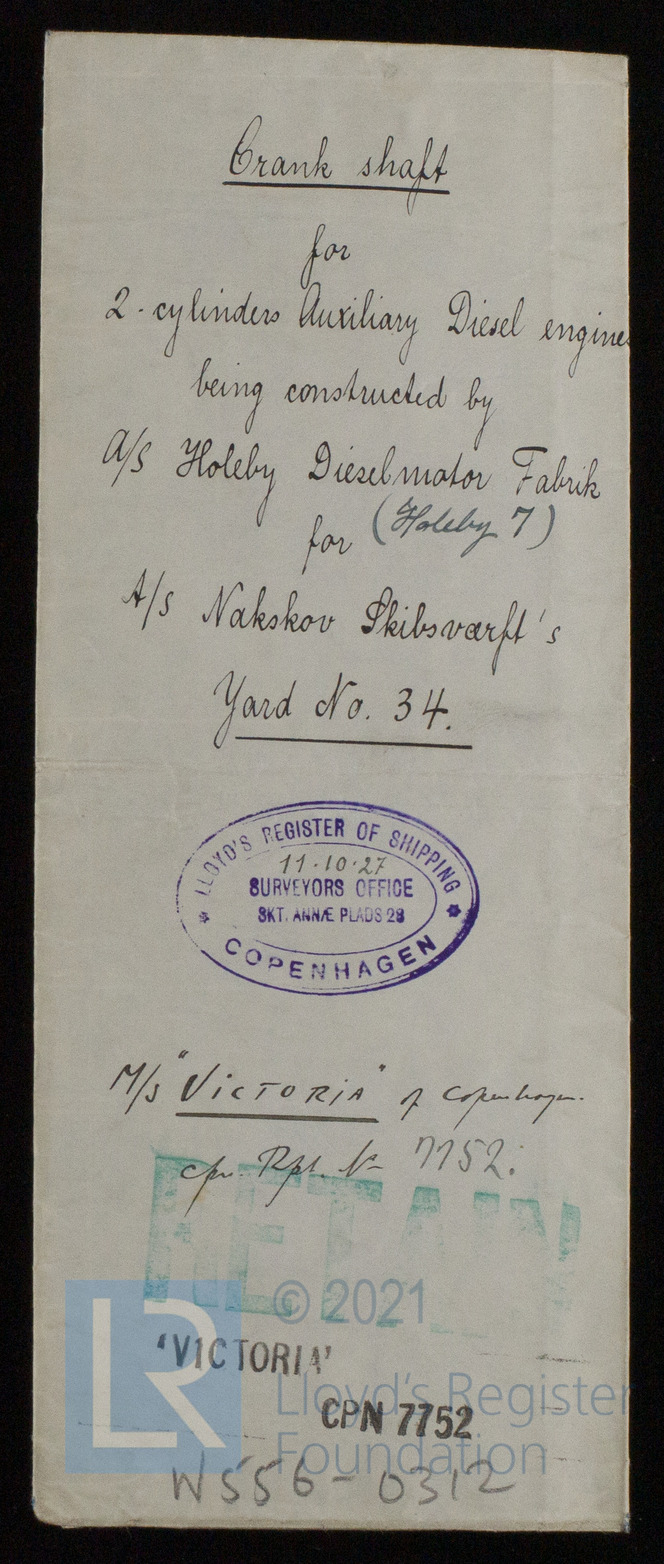 Crank shaft
for
2-cylinders Auxiliary Diesel engines
being constructed by
A/S Holeby Dieselmotor Fabrik
(Holeby 7)
for
A/S Nakskov Skibsværft's
Yard No. 34.
LLOYD'S REGISTER OF SHIPPING
11-10-27
SURVEYORS OFFICE
SKT. ANNÆ PLADS 28
COPENHAGEN
M/S "VICTORIA" of Copenhagen.
cpn. Rpt. No 7752.
RETAIN
© 2021
LR
'VICTORIA'
Lloyd's Register
CPN 7752
Foundation
W556-0312